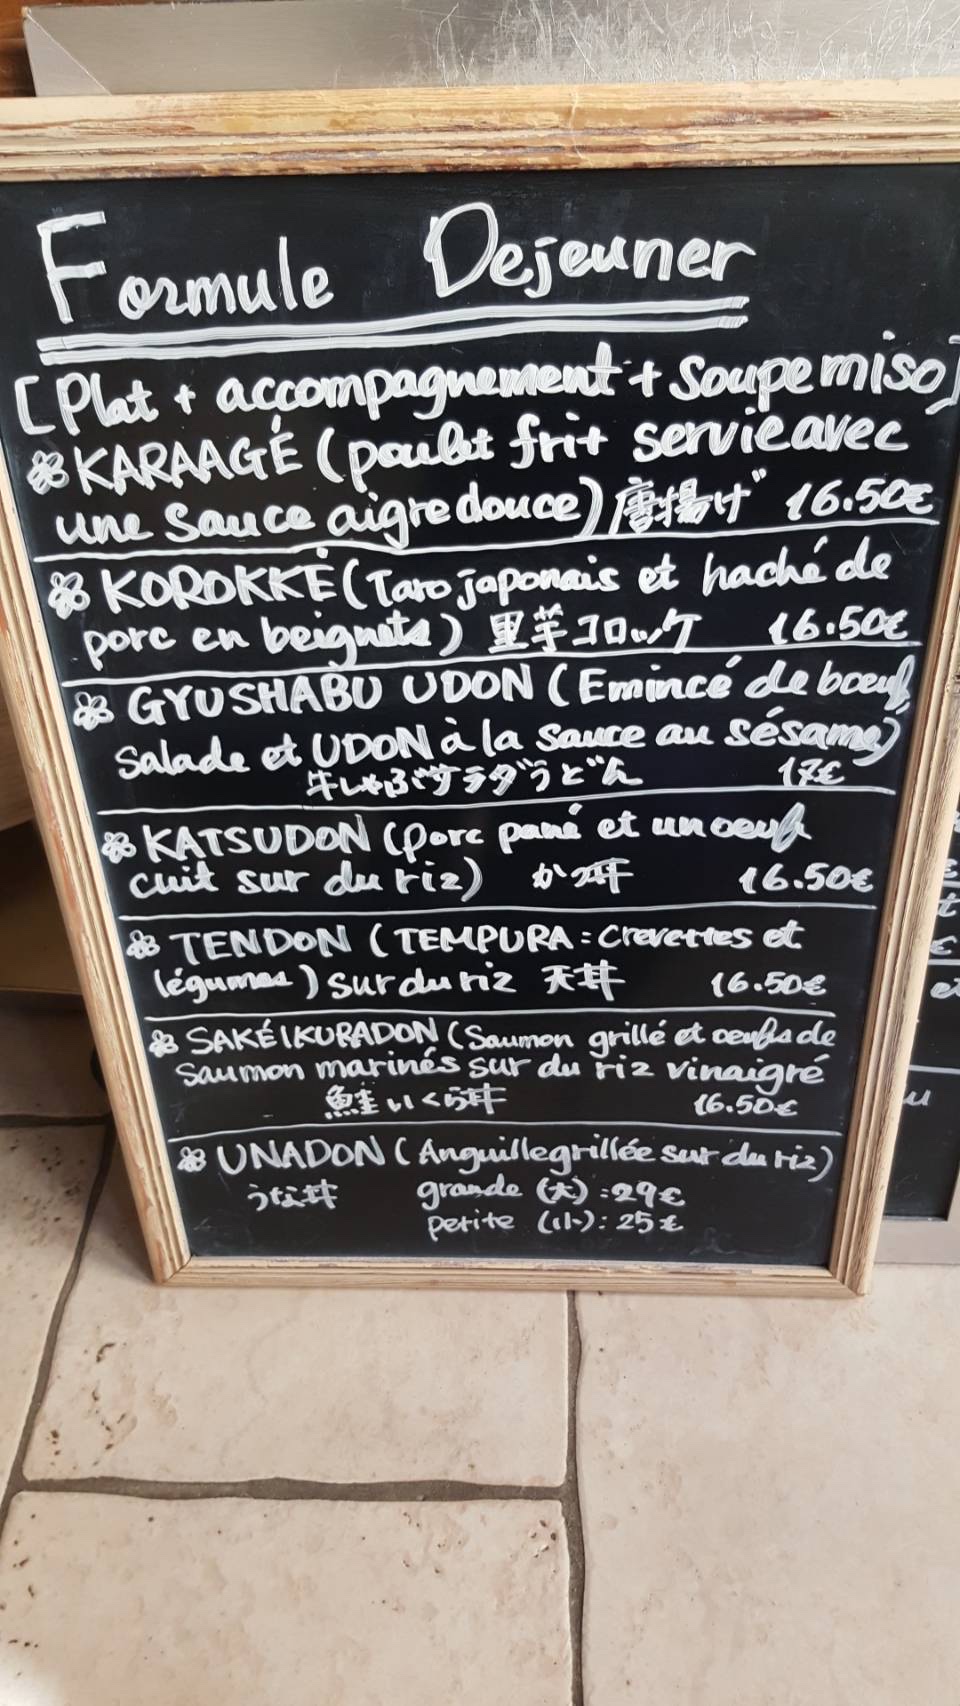 Formule Dejeuner
[Plat + accompagnement + Soupe miso]
KARAAGÉ (poulet frit servie avec
une sauce aigre douce) 唐揚げ 16.50€
KOROKKÉ (Taro japonais et haché de
porc en beignets) 里芋コロッケ 16.50€
GYUSHABU UDON (Emincé de boeuf,
Salade et UDON à la sauce au sésame)
牛しゃぶサラダうどん 17€
KATSUDON (porc pané et un oeuf
cuit sur du riz) かつ丼 16.50€
TENDON (TEMPURA : Crevettes et
légumes) sur du riz 天丼 16.50€
SAKÉIKURADON (Saumon grillé et oeufs de
saumon marinés sur du riz vinaigré
鮭いくら丼 16.50€
UNADON (Anguille grillée sur du riz)
うな丼 grande (大) : 29€
petite (小) : 25€